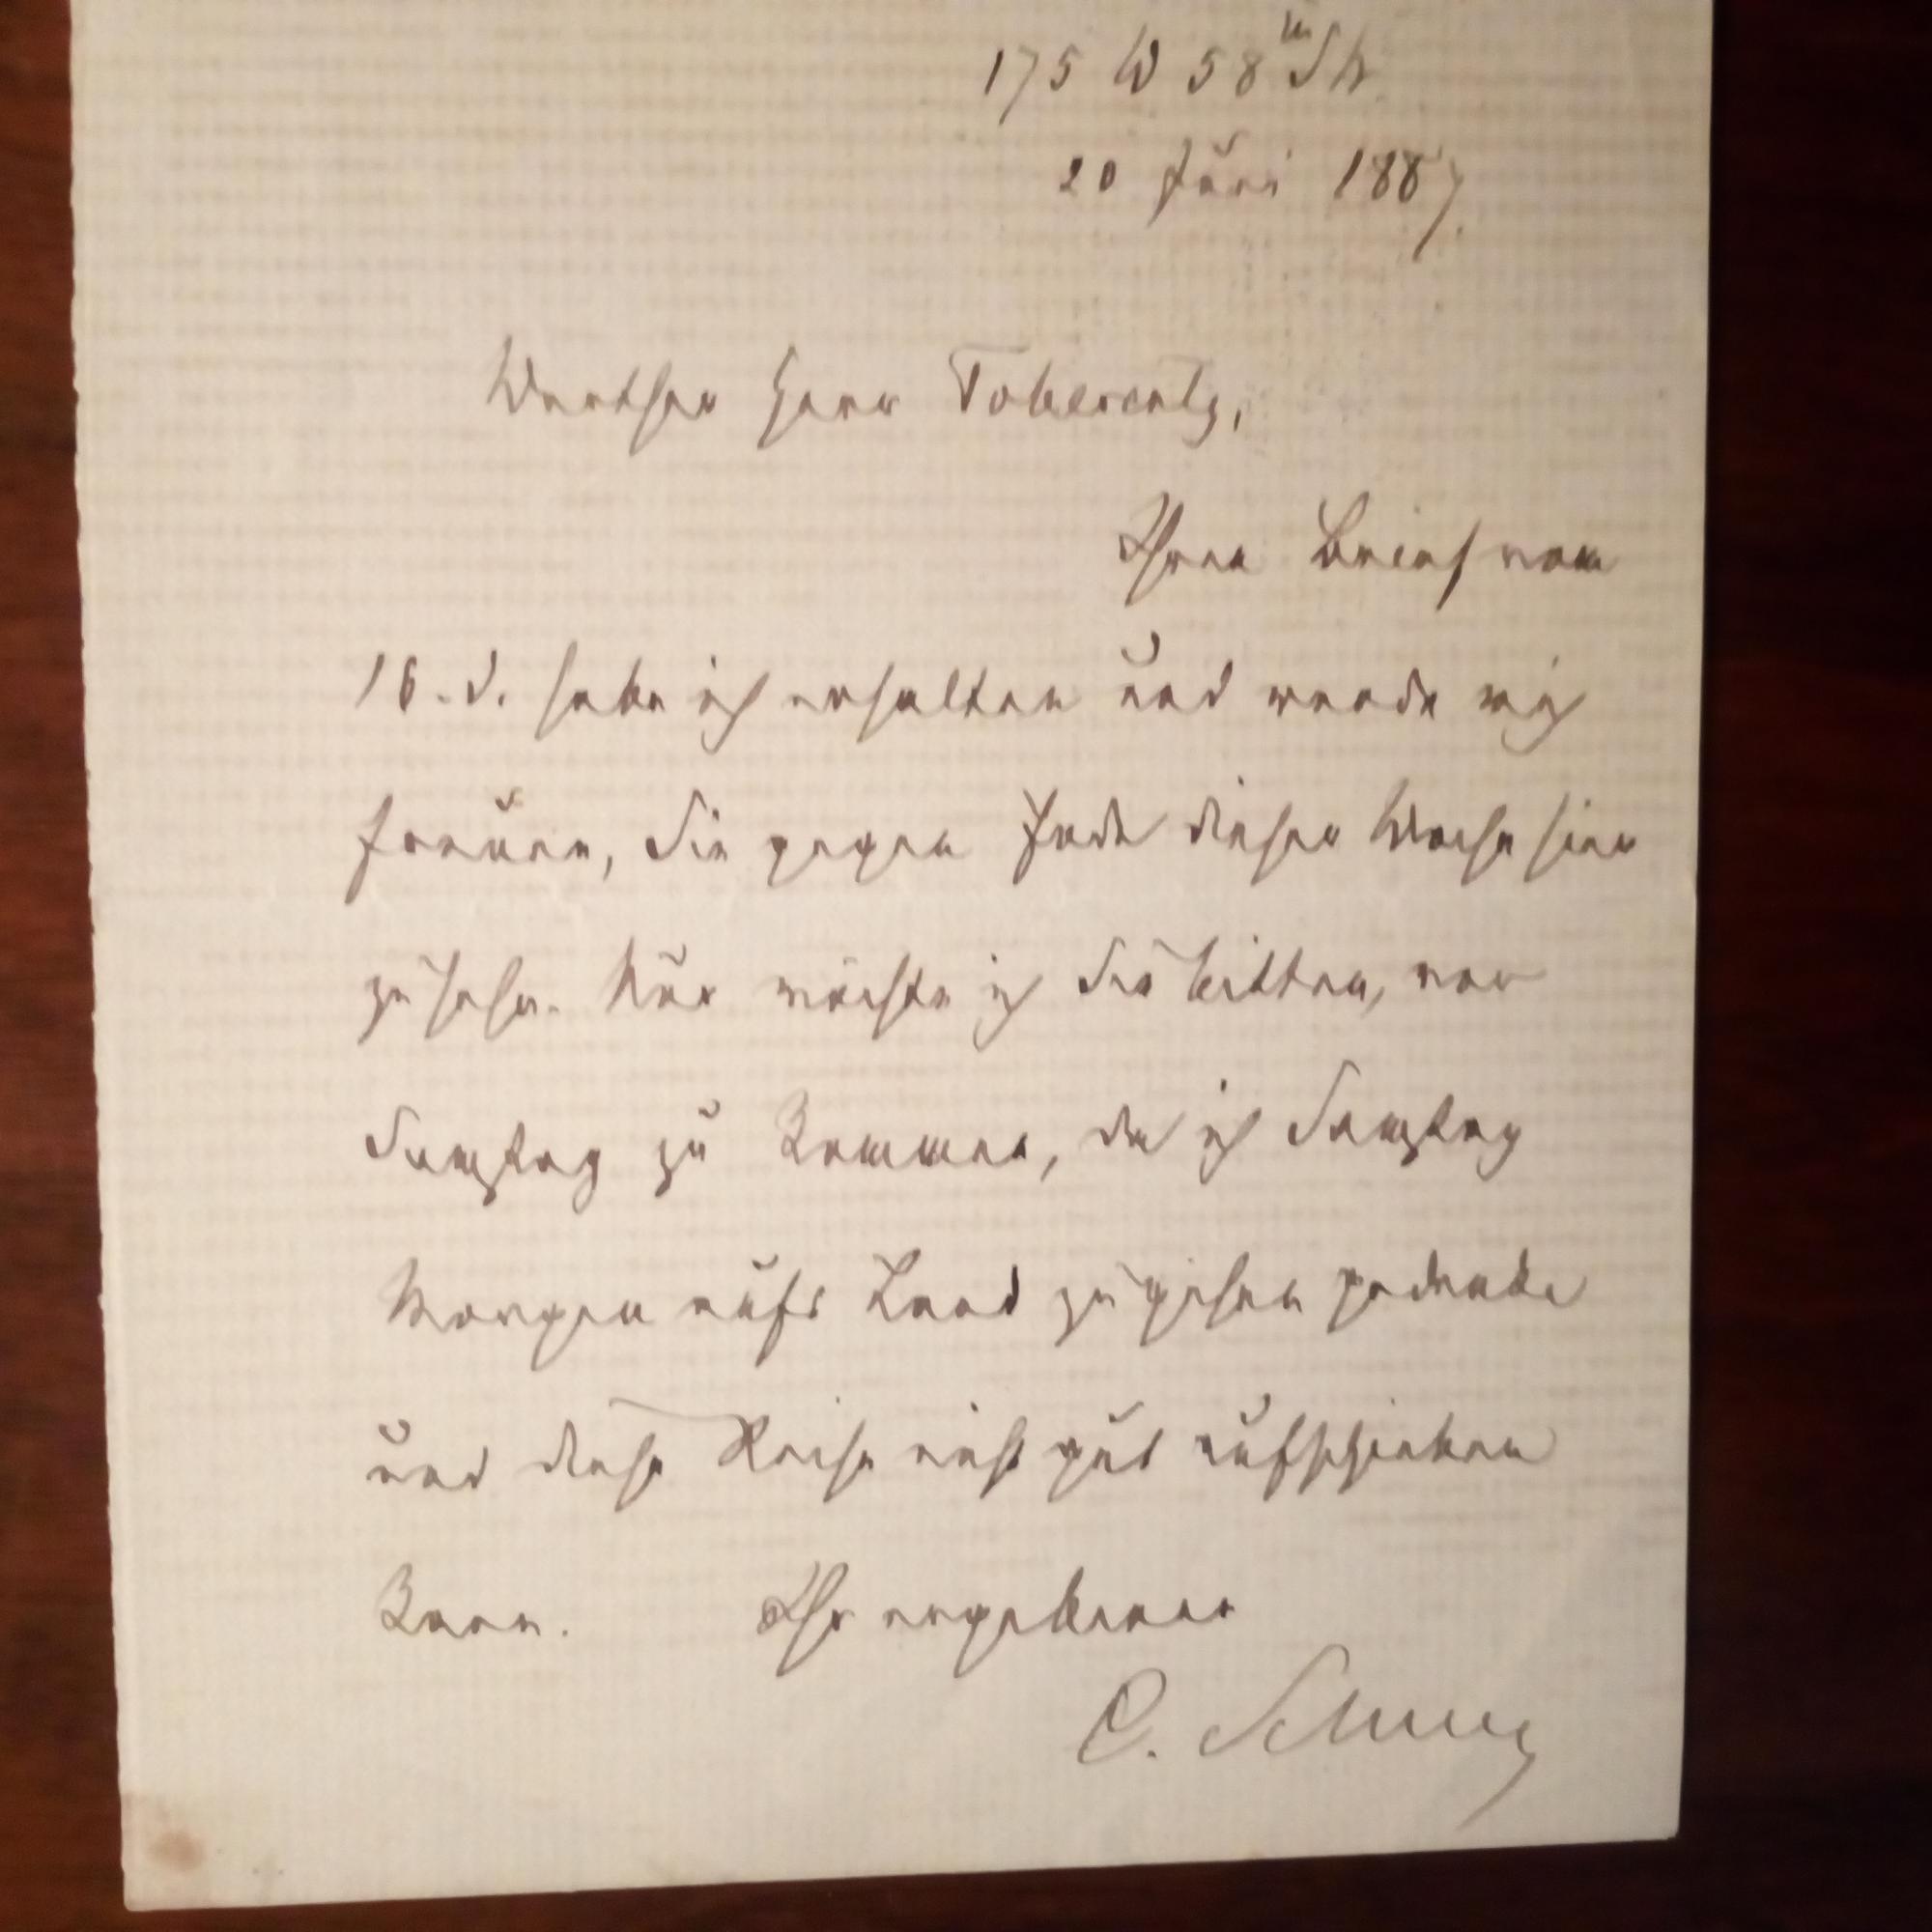 175 W 58th St.
20 Juni 1887.
Werther Herr Toberentz,
Ihren Brief vom
16. d. habe ich erhalten und werde mich
freuen, Sie gegen Ende dieser Woche hier
zu sehen. Nur möchte ich Sie bitten, vor
Samstag zu kommen, da ich Samstag
Morgen aufs Land zu gehen gedenke
und diese Reise nicht gut aufschieben
kann. Ihr ergebener
C. Schurz